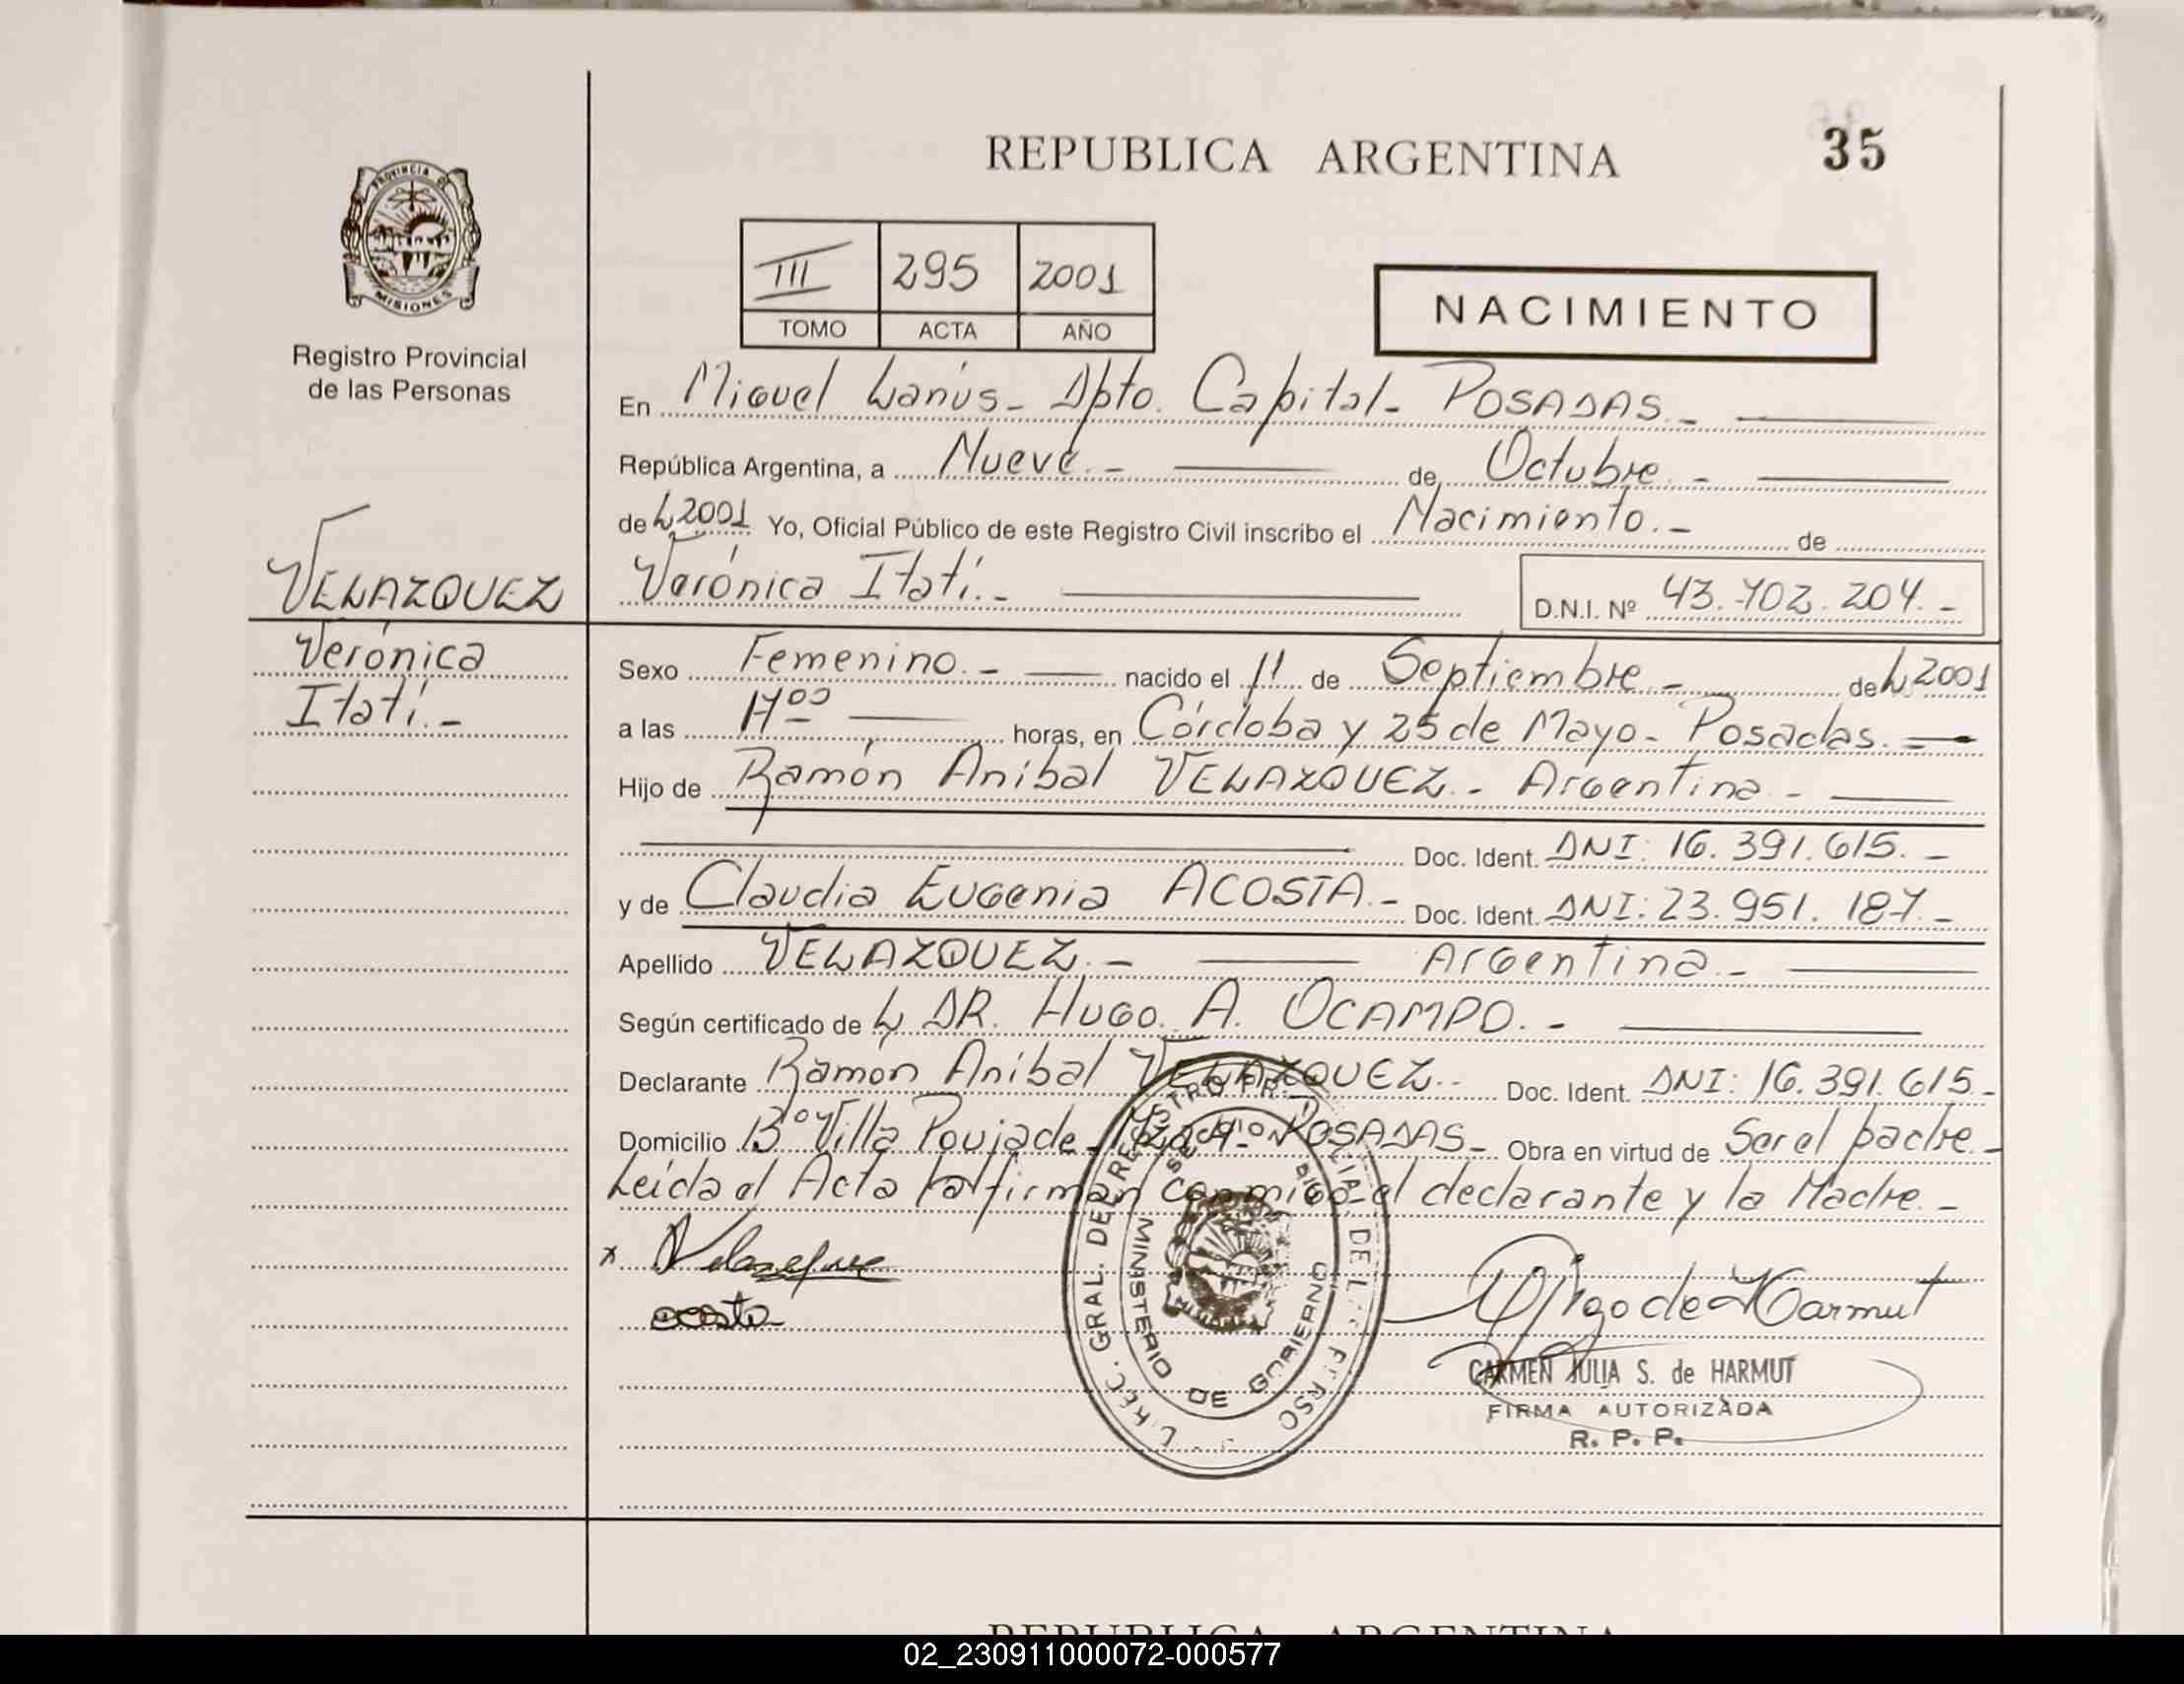 REPUBLICA ARGENTINA
35
PROVINCIA DE
MISIONES
Registro Provincial
de las Personas
III 295 2001
TOMO ACTA AÑO
NACIMIENTO
En Miguel Lanús - Dpto. Capital - POSADAS. -
República Argentina, a Nueve. - de Octubre. -
de L 2001 Yo, Oficial Público de este Registro Civil inscribo el Nacimiento. - de
VELAZQUEZ
Verónica Itatí. -
D.N.I. Nº 43.702.204. -
Verónica
Itatí. -
Sexo Femenino. - nacido el 11 de Septiembre - de L 2001
a las 17 00 horas, en Córdoba y 25 de Mayo - Posadas. -
Hijo de Ramón Aníbal VELAZQUEZ - Argentina -
Doc. Ident. DNI: 16.391.615. -
y de Claudia Eugenia ACOSTA. - Doc. Ident. DNI: 23.951.187. -
Apellido VELAZQUEZ. - Argentina. -
Según certificado de L DR. Hugo. A. OCAMPO. -
Declarante Ramón Aníbal VELAZQUEZ. Doc. Ident. DNI: 16.391.615. -
Domicilio Bº Villa Poujade - POSADAS - Obra en virtud de Ser el padre. -
Leída el Acta la firman conmigo el declarante y la Madre. -
x Velazquez
acosta
GRAL. DEL REGISTRO
MINISTERIO DE GOBIERNO
de Harmut
CARMEN JULIA S. de HARMUT
FIRMA AUTORIZADA
R. P. P.
REPUBLICA ARGENTINA
02_230911000072-000577